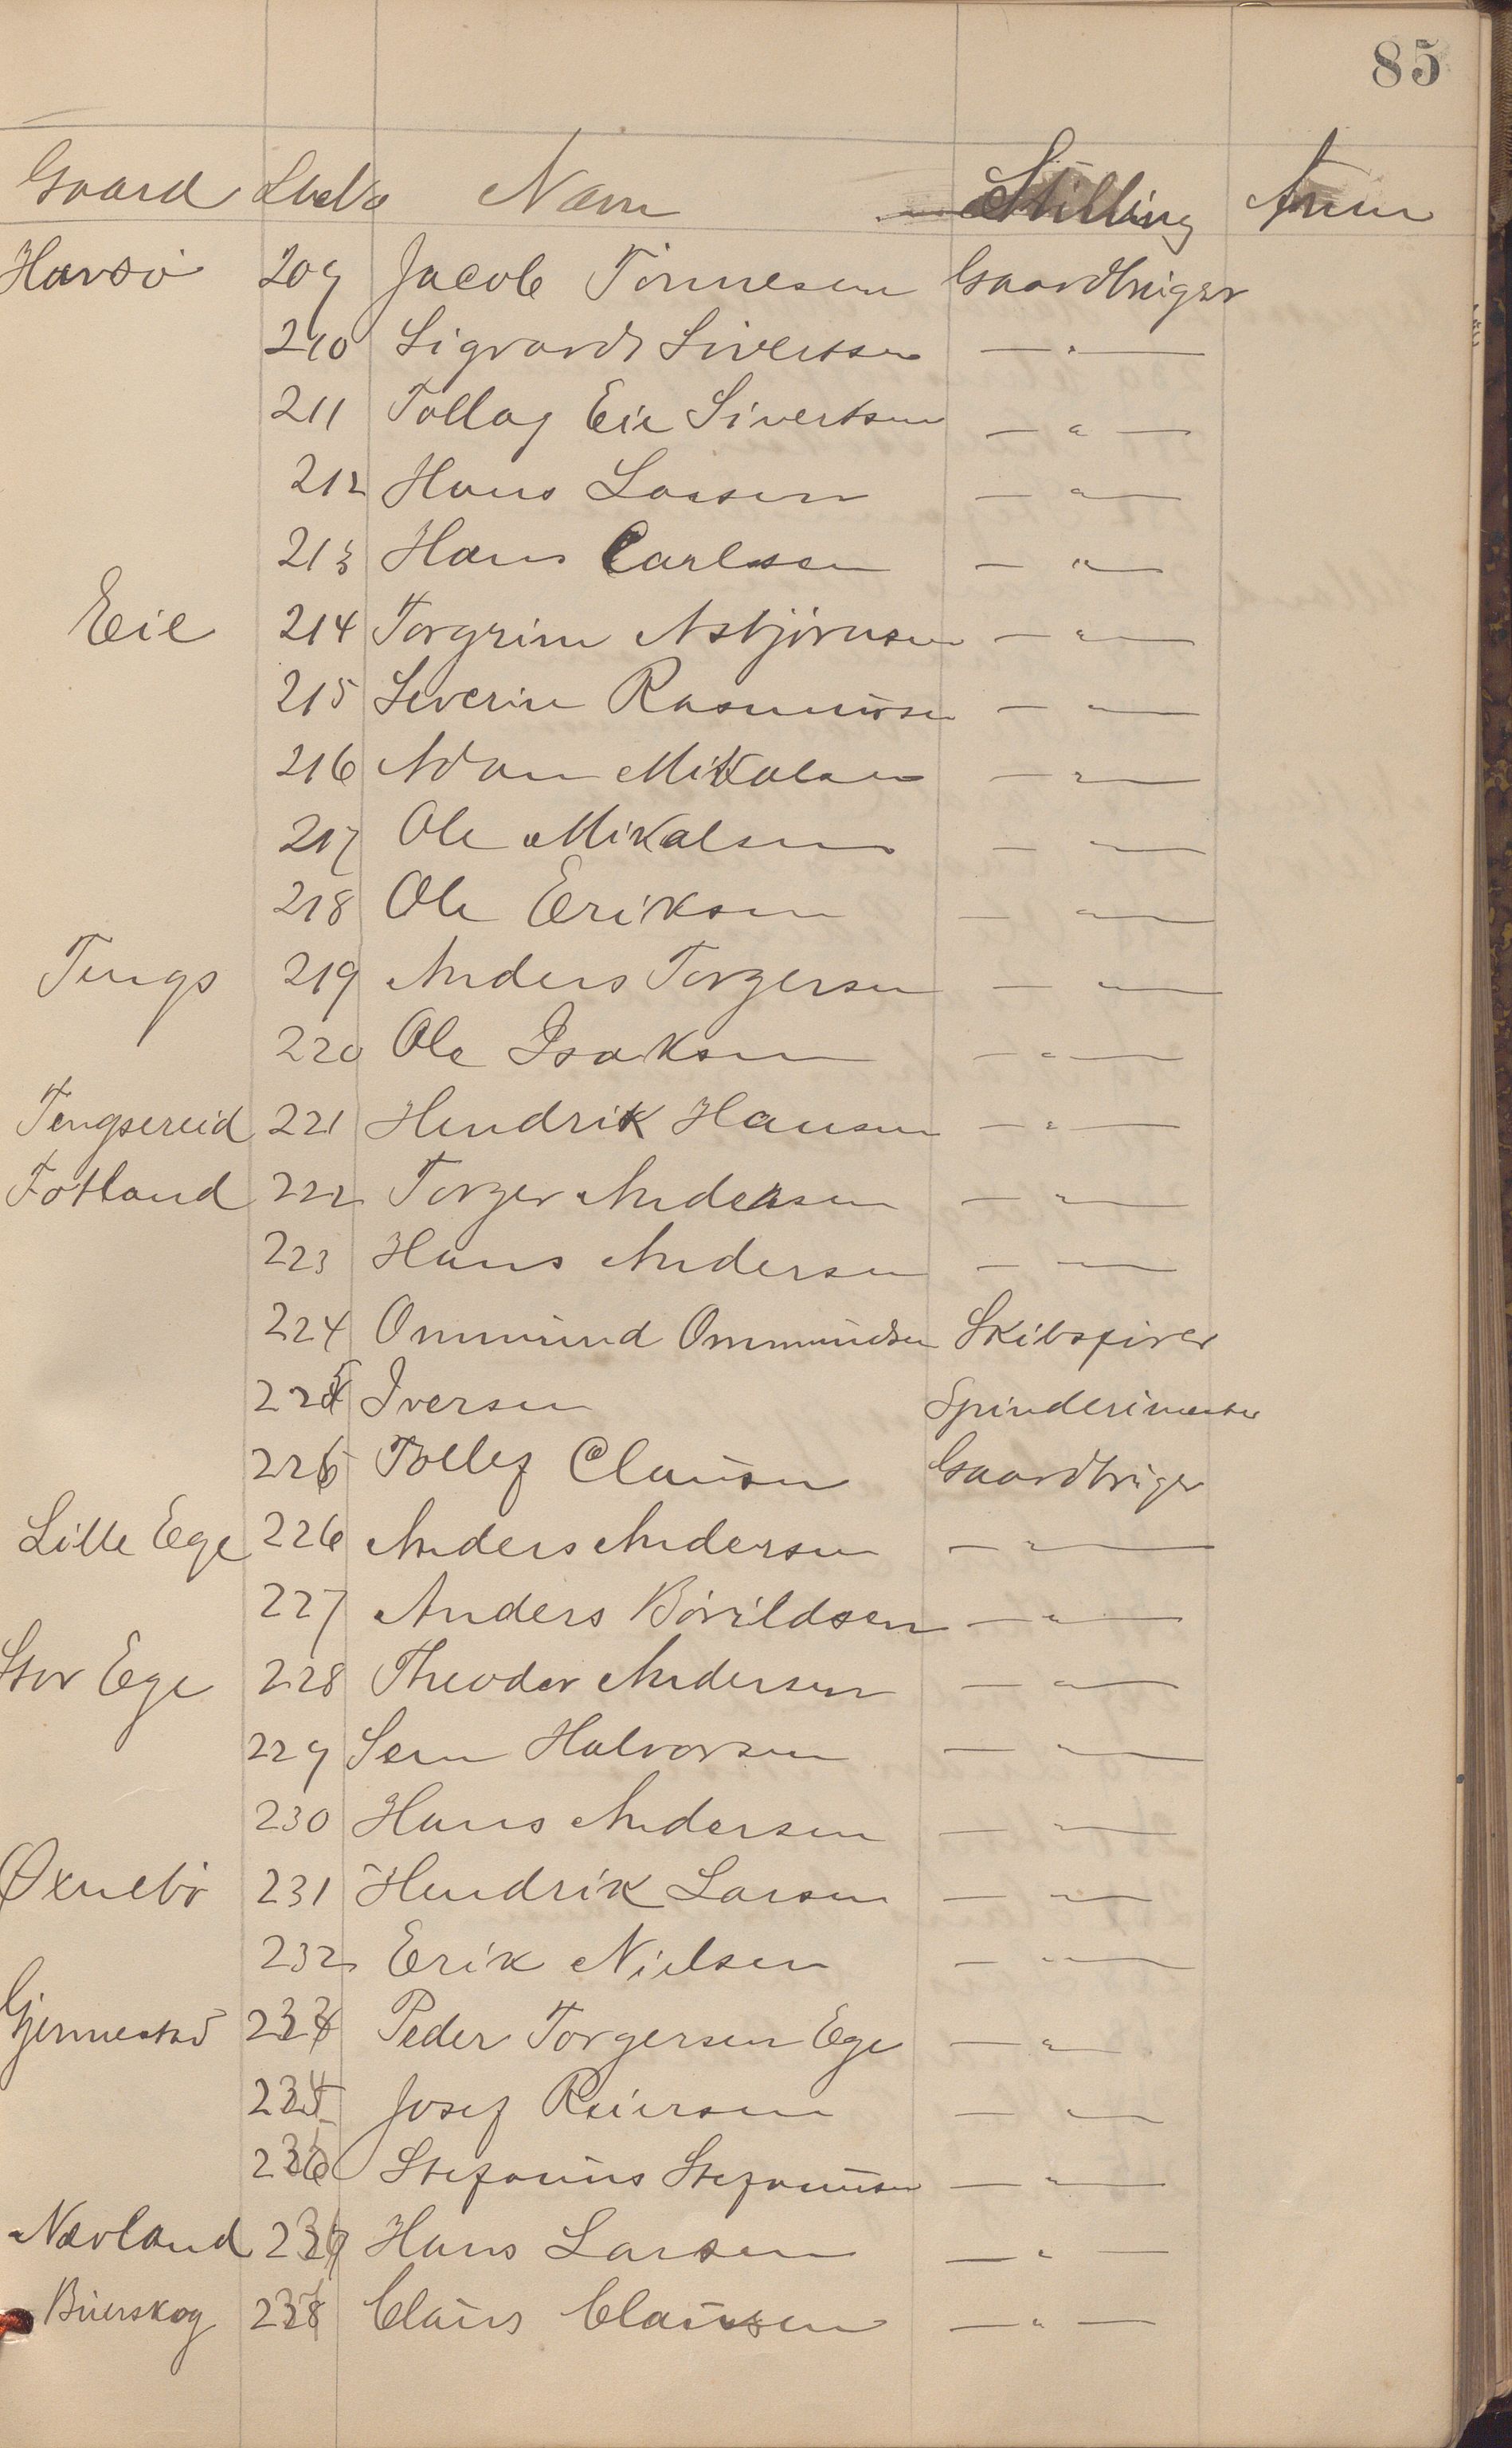 85
Gaard LbeNo Navn Stilling Anm
Havsö 209 Jacob Tönnesen Gaardbruger
210 Sigvard Sivertsen — " —
211 Tollag Eie Sivertsen — " —
212 Hans Lassen — " —
213 Hans Carlssen — " —
Eeie 214 Torgrim Asbjörnsen — " —
215 Severin Rasmussen — " —
216 Adam Mikalsen — " —
217 Ole Mikalsen — " —
218 Ole Eriksen — " —
Tengs 219 Anders Torgersen — " —
220 Ole Isaksen — " —
Tengsereid 221 Hendrik Hansen — " —
Fotland 222 Torger Andersen — " —
223 Hans Andersen — " —
224 Ommund Ommundsen Skibsfører
225 Iversen Spinderimester
226 Tollef Clausen Gaardbruger
Lille Ege 226 Anders Andersen — " —
227 Anders Börildsen — " —
Stor Ege 228 Theodor Andersen — " —
229 Sem Halvorsen — " —
230 Hans Andersen — " —
Øxnebö 231 Hendrik Larsen — " —
232 Erik Nielsen — " —
Gjermestad 233 Peder Torgersen Ege — " —
234 Josef Reiersen — " —
235 Stefanus Stefanusen — " —
Nævland 236 Hans Larsen — " —
Büerskog 237 Claus Claussen — " —